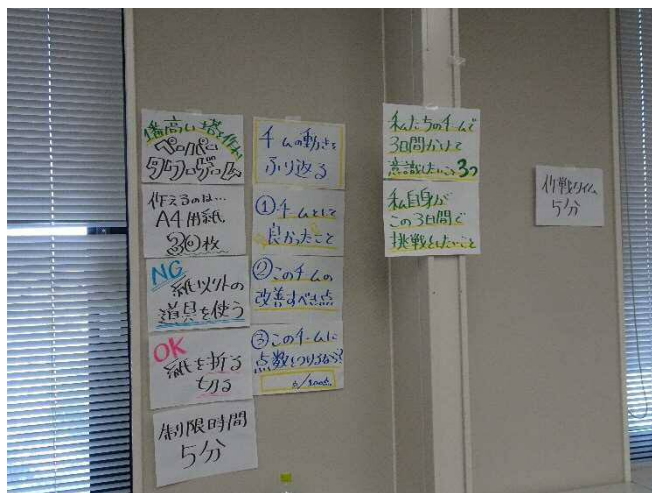 一番高い塔を作れ
ペーパー
タワーゲーム
使えるのは…
A4用紙
30枚
NG
紙以外の
道具を使う
OK
紙を折る
切る
制限時間
5分
チームの動きを
ふり返る
①チームとして
良かったこと
②このチームの
改善すべき点
③このチームに
点数をつけるなら?
/100点
私たちのチームで
3日間かけて
意識したいこと3つ
私自身が
この3日間で
挑戦したいこと
作戦タイム
5分